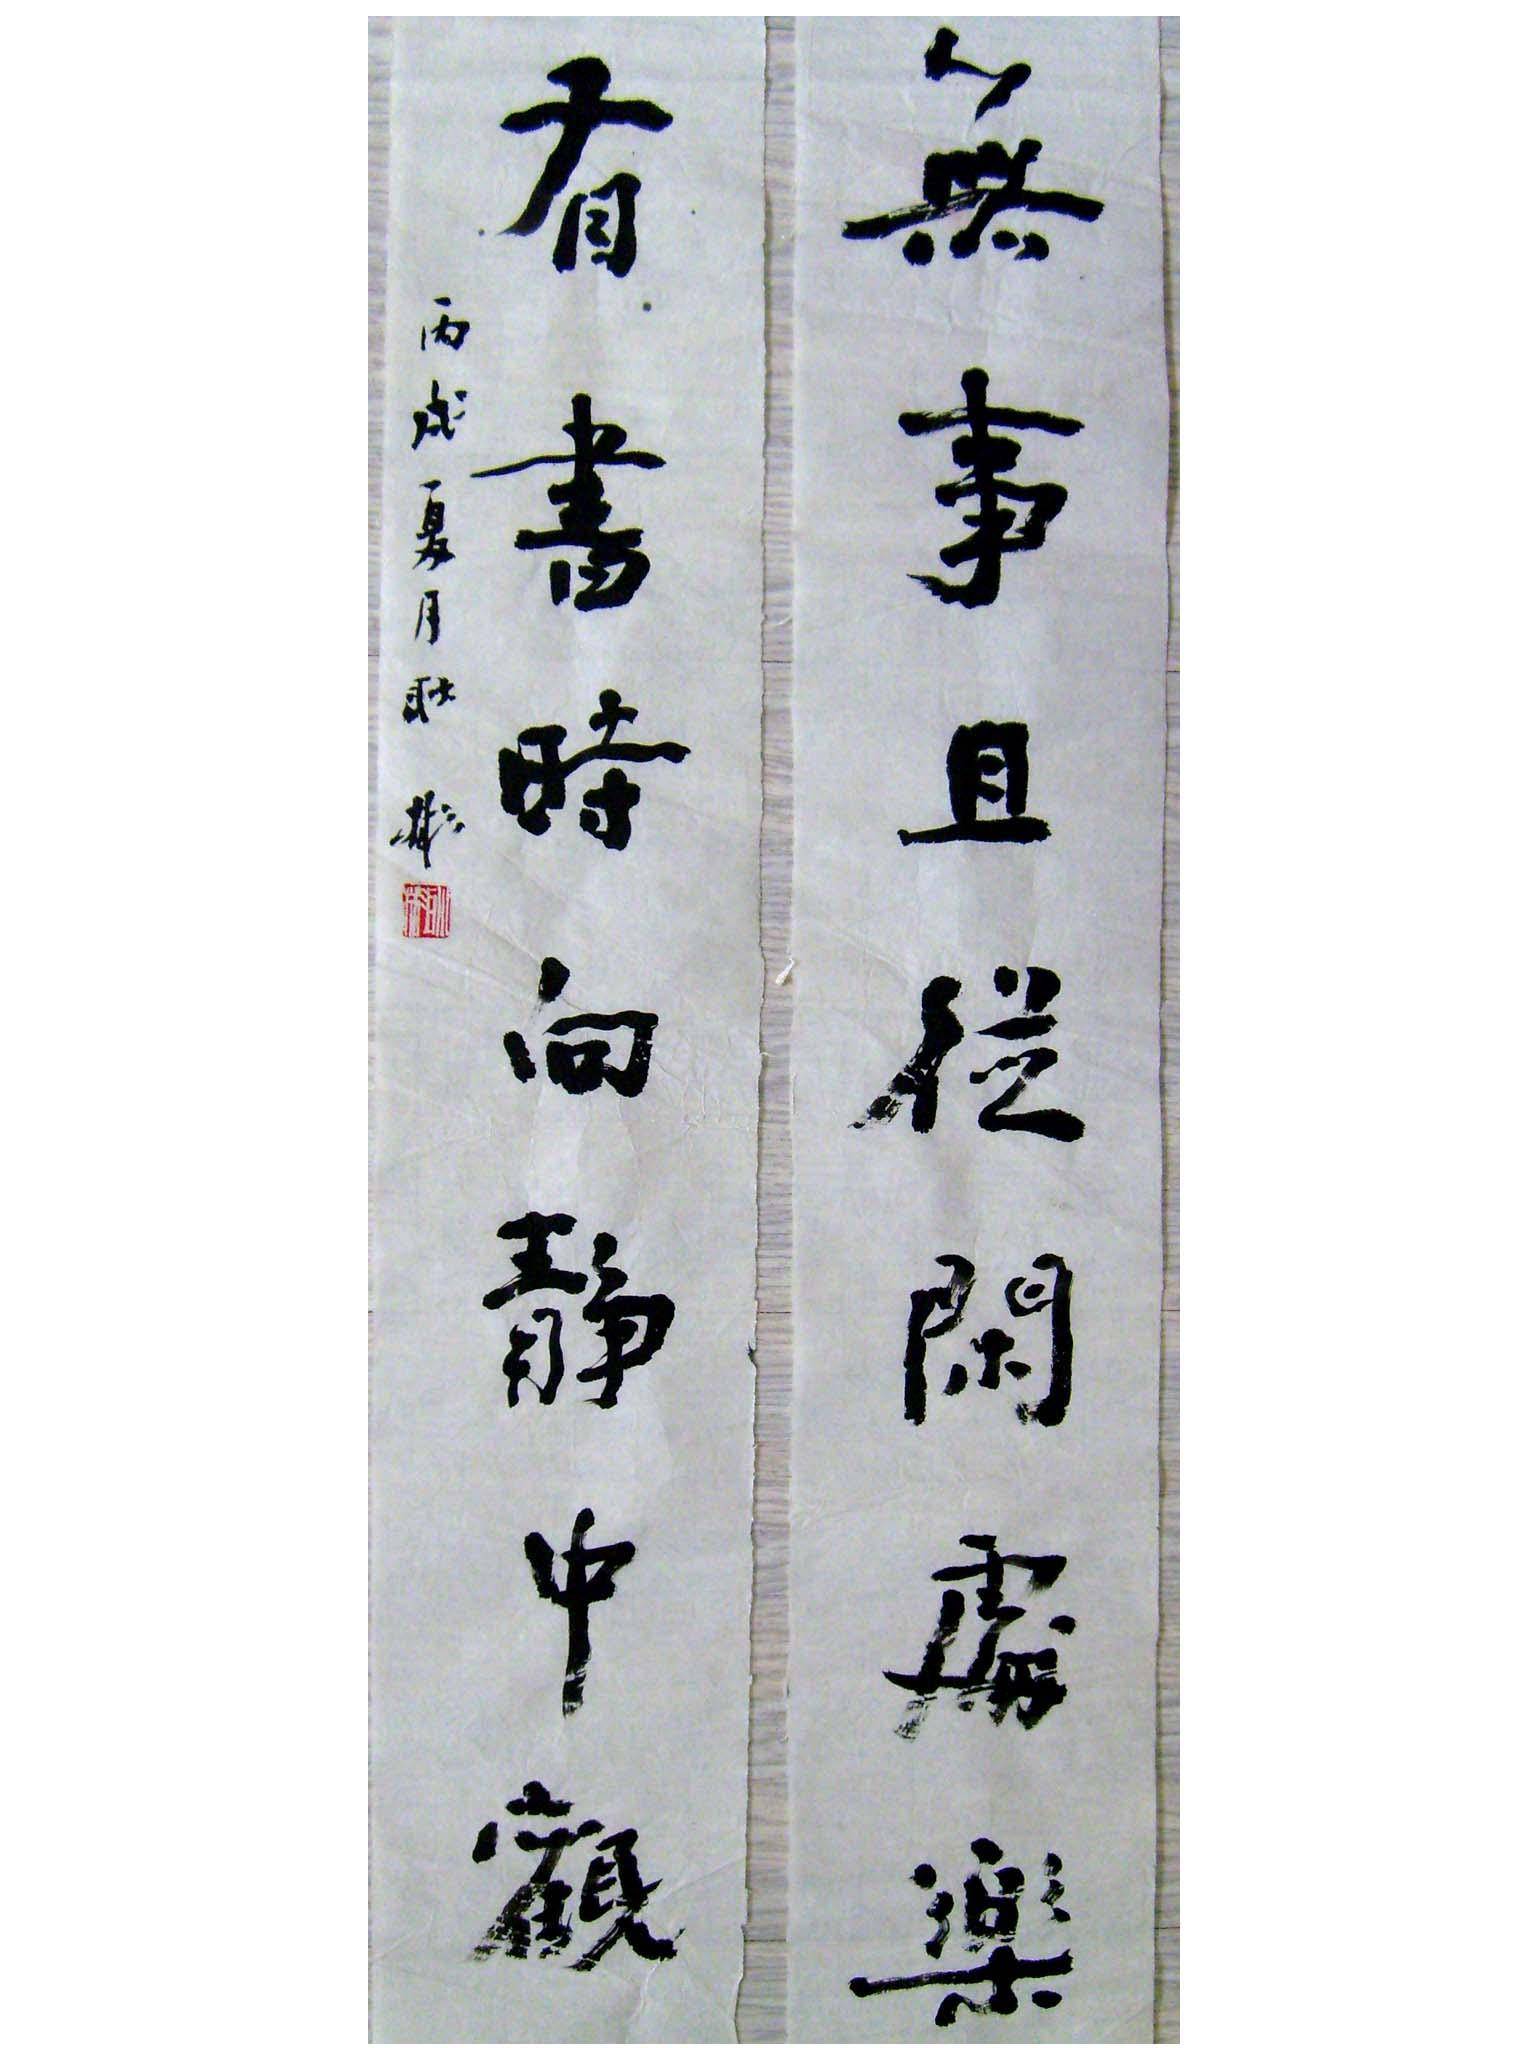 無事且從閑處樂
有書時向靜中觀
丙戌夏月耿彬